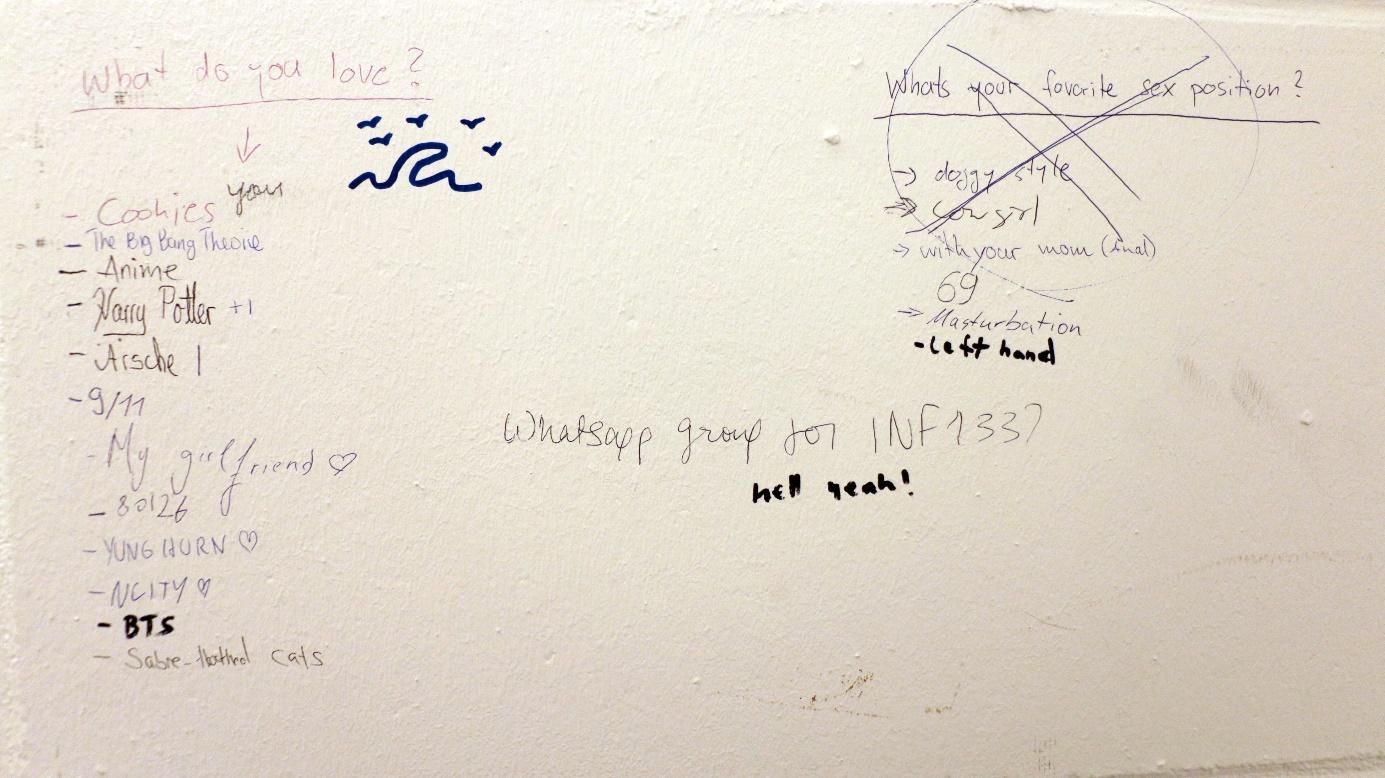 What do you love?
you
- Cookies
- The Big Bang Theorie
- Anime
- Harry Potter +1
- Ärsche |
- 9/11
- My girlfriend ♡
- 80126
- YUNG HURN ♡
- NCITY ♡
- BTS
- Sabre-toothed cats
Whats your favorite sex position?
→ doggy style
→ Cowgirl
→ with your mom (final)
69
→ Masturbation
- Left hand
Whatsapp group for INF1337
hell yeah!